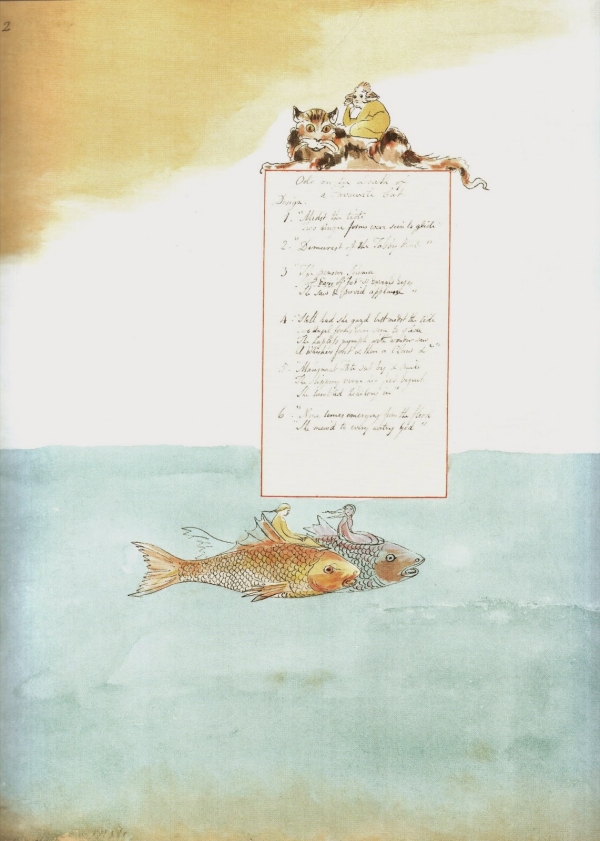 2
Ode on the Death of
a Favourite Cat
Design.
1. "Midst the tide
Two Angel forms were seen to glide"
2. "Demurest of the Tabby Kind."
3 "The pensive Selima
Her Ears of Jet & emrald eyes
She saw & purr'd applause"
4 "Still had she gazd but midst the tide
Two Angel forms were seen to glide
The hapless nymph with wonder saw
A Whisker first & then a Claw &c"
5. "Malignant Fate sat by & smild
The slippery verge her feet beguild
She tumbled headlong in"
6 "Nine times emerging from the flood
She mew'd to every watry God"